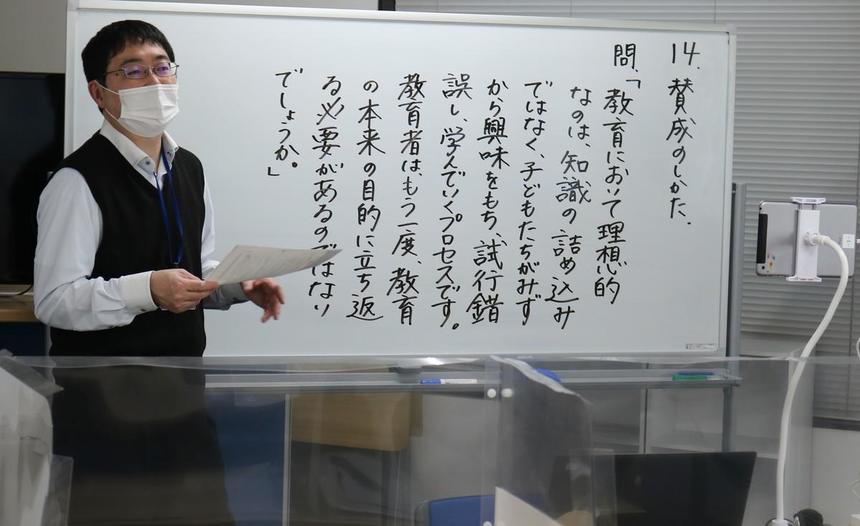 14. 賛成のしかた.
問.「教育において理想的
なのは、知識の詰め込み
ではなく、子どもたちがみず
から興味をもち、試行錯
誤し、学んでいくプロセスです。
教育者は、もう一度、教育
の本来の目的に立ち返
る必要があるのではない
でしょうか。」